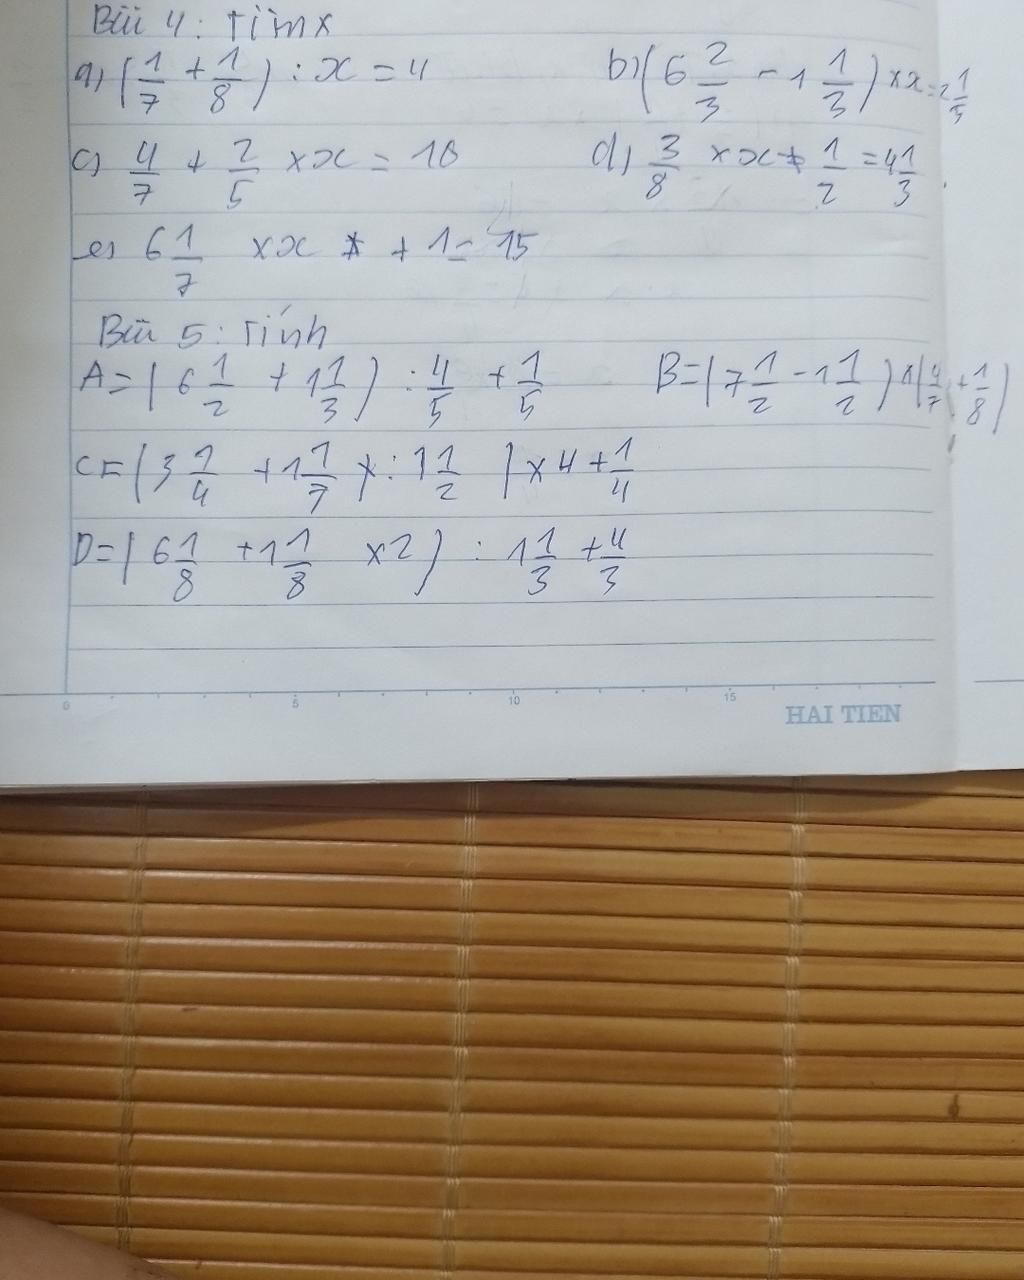 Bài 4: Tìm x
a) (1/7 + 1/8) : x = 4 b) (6 2/3 - 1 1/3) x x = 2 1/5
c) 4/7 + 2/5 x x = 10 d) 3/8 x x + 1/2 = 4 1/3
e) 6 1/7 x x + 1 = 15
Bài 5: Tính
A = (6 1/2 + 1 1/3) : 4/5 + 1/5 B = (7 1/2 - 1 1/2) x (4/7 + 1/8)
C = (3 1/4 + 1 1/7 : 1 1/2) x 4 + 1/4
D = (6 1/8 + 1 1/8 x 2) : 1 1/3 + 4/3
0 5 10 15
HAI TIEN